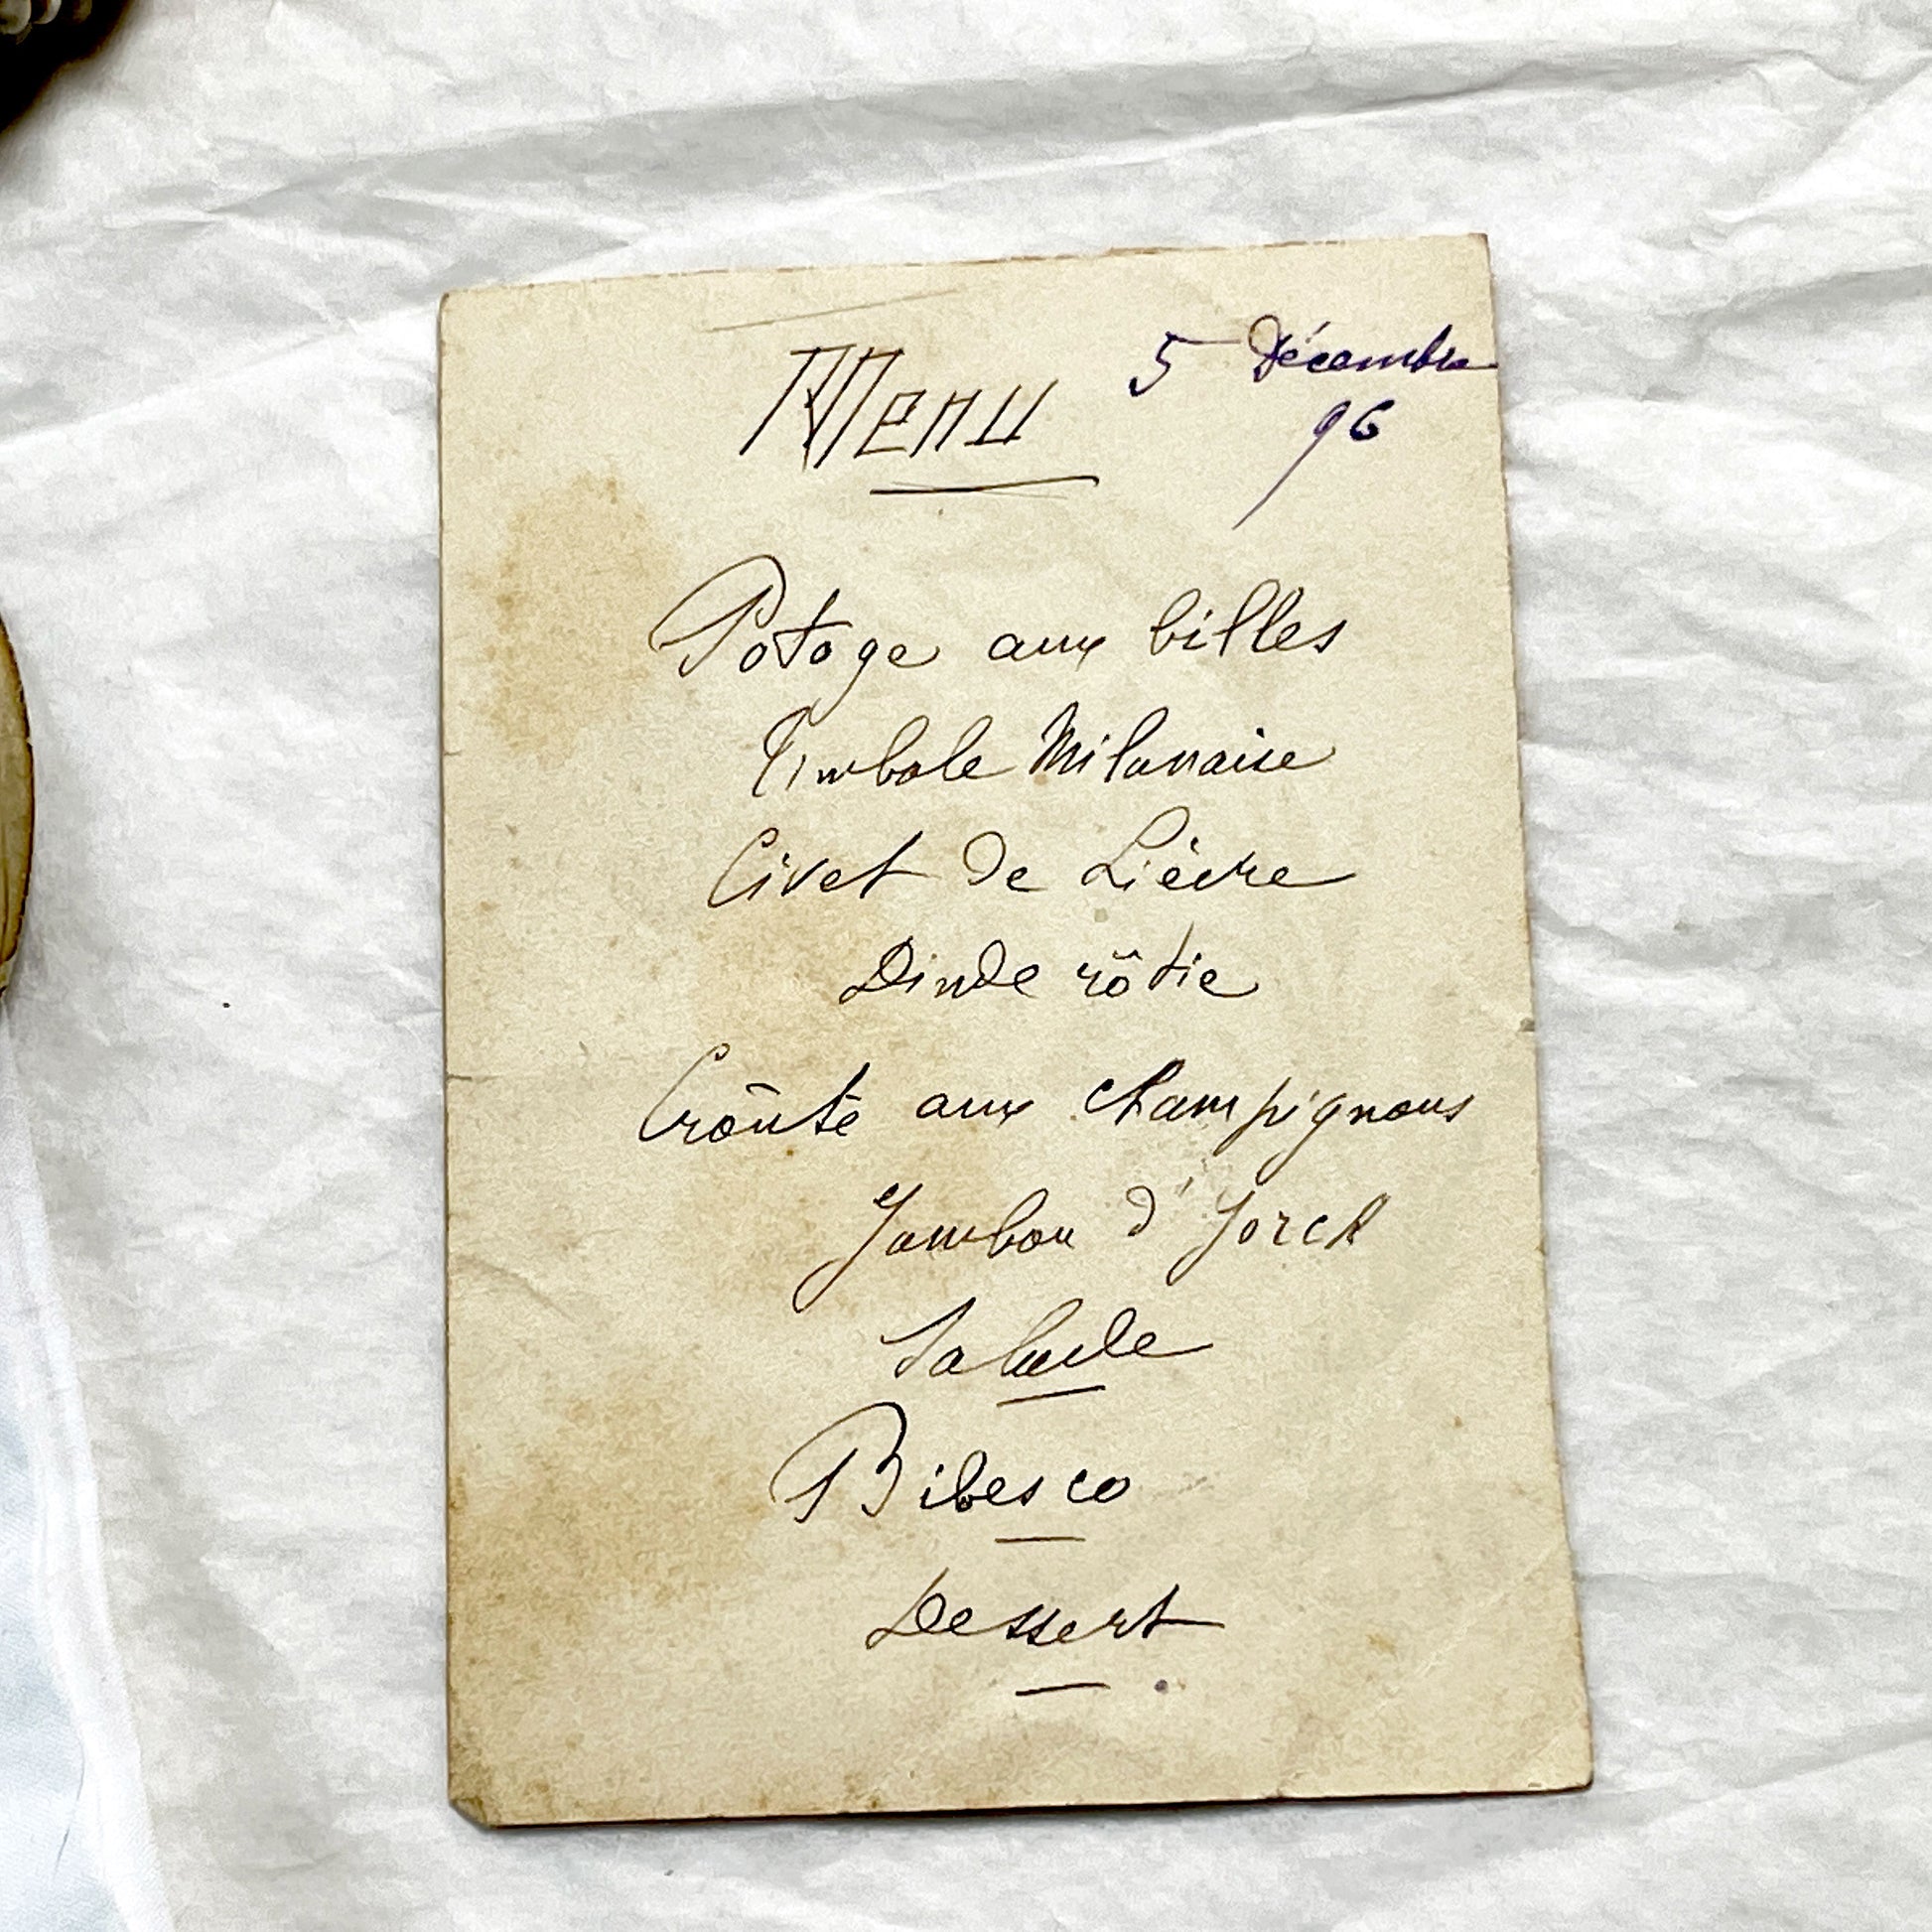 Menu
5 Décembre
96
Potage aux billes
Timbale Milanaise
Civet de Lièvre
Dinde rôtie
Croûte aux champignons
Jambon d'Yorck
Salade
Bibesco
Dessert